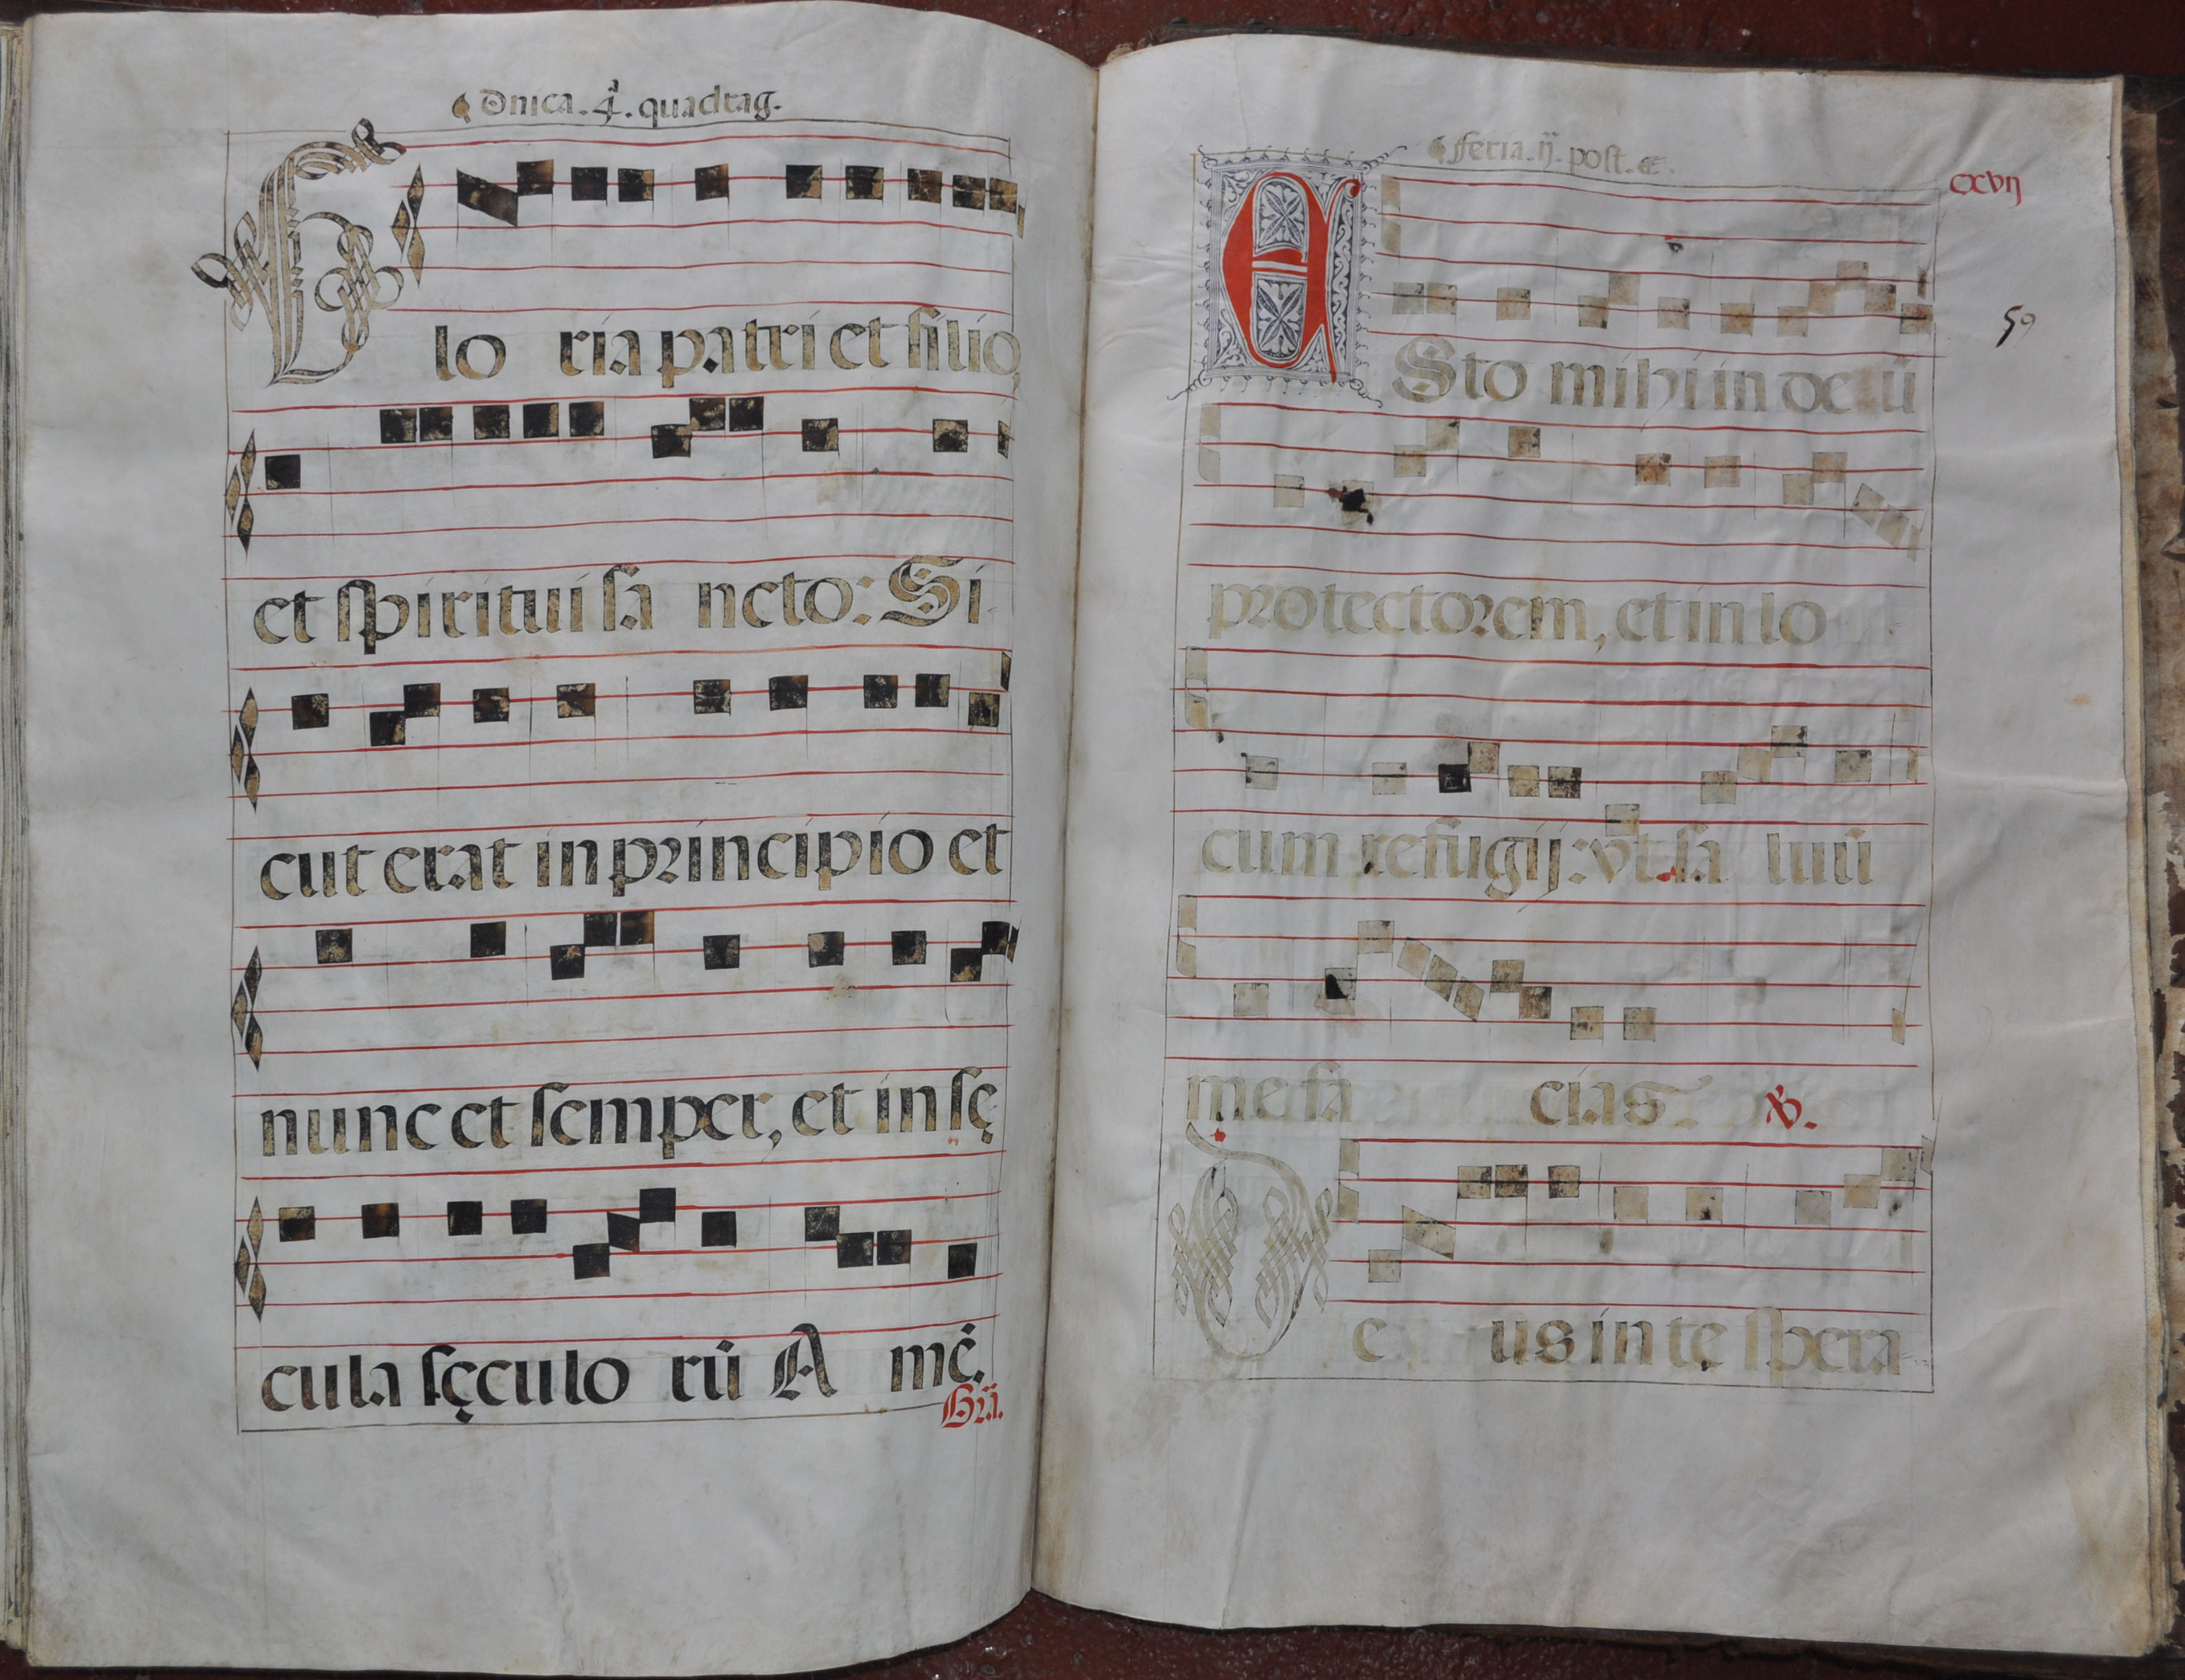 Dnica. 4ͣ. quadrag.
Glo ria patri et filio,
et spiritui sa ncto: Si
cut erat in principio et
nunc et semper, et in sę
cula sęculo rū A mē.
Gr̄a.
feria. ij. post. C.
cxvij
59
ESto mihi in deū
protectorem, et in lo
cum refugij: vt sa luū
me fa cias. ℣.
De us in te spera